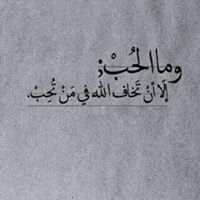 وما الحُبْ;
إلّا أنْ تَخاف الله في مَنْ تُحِبْ.